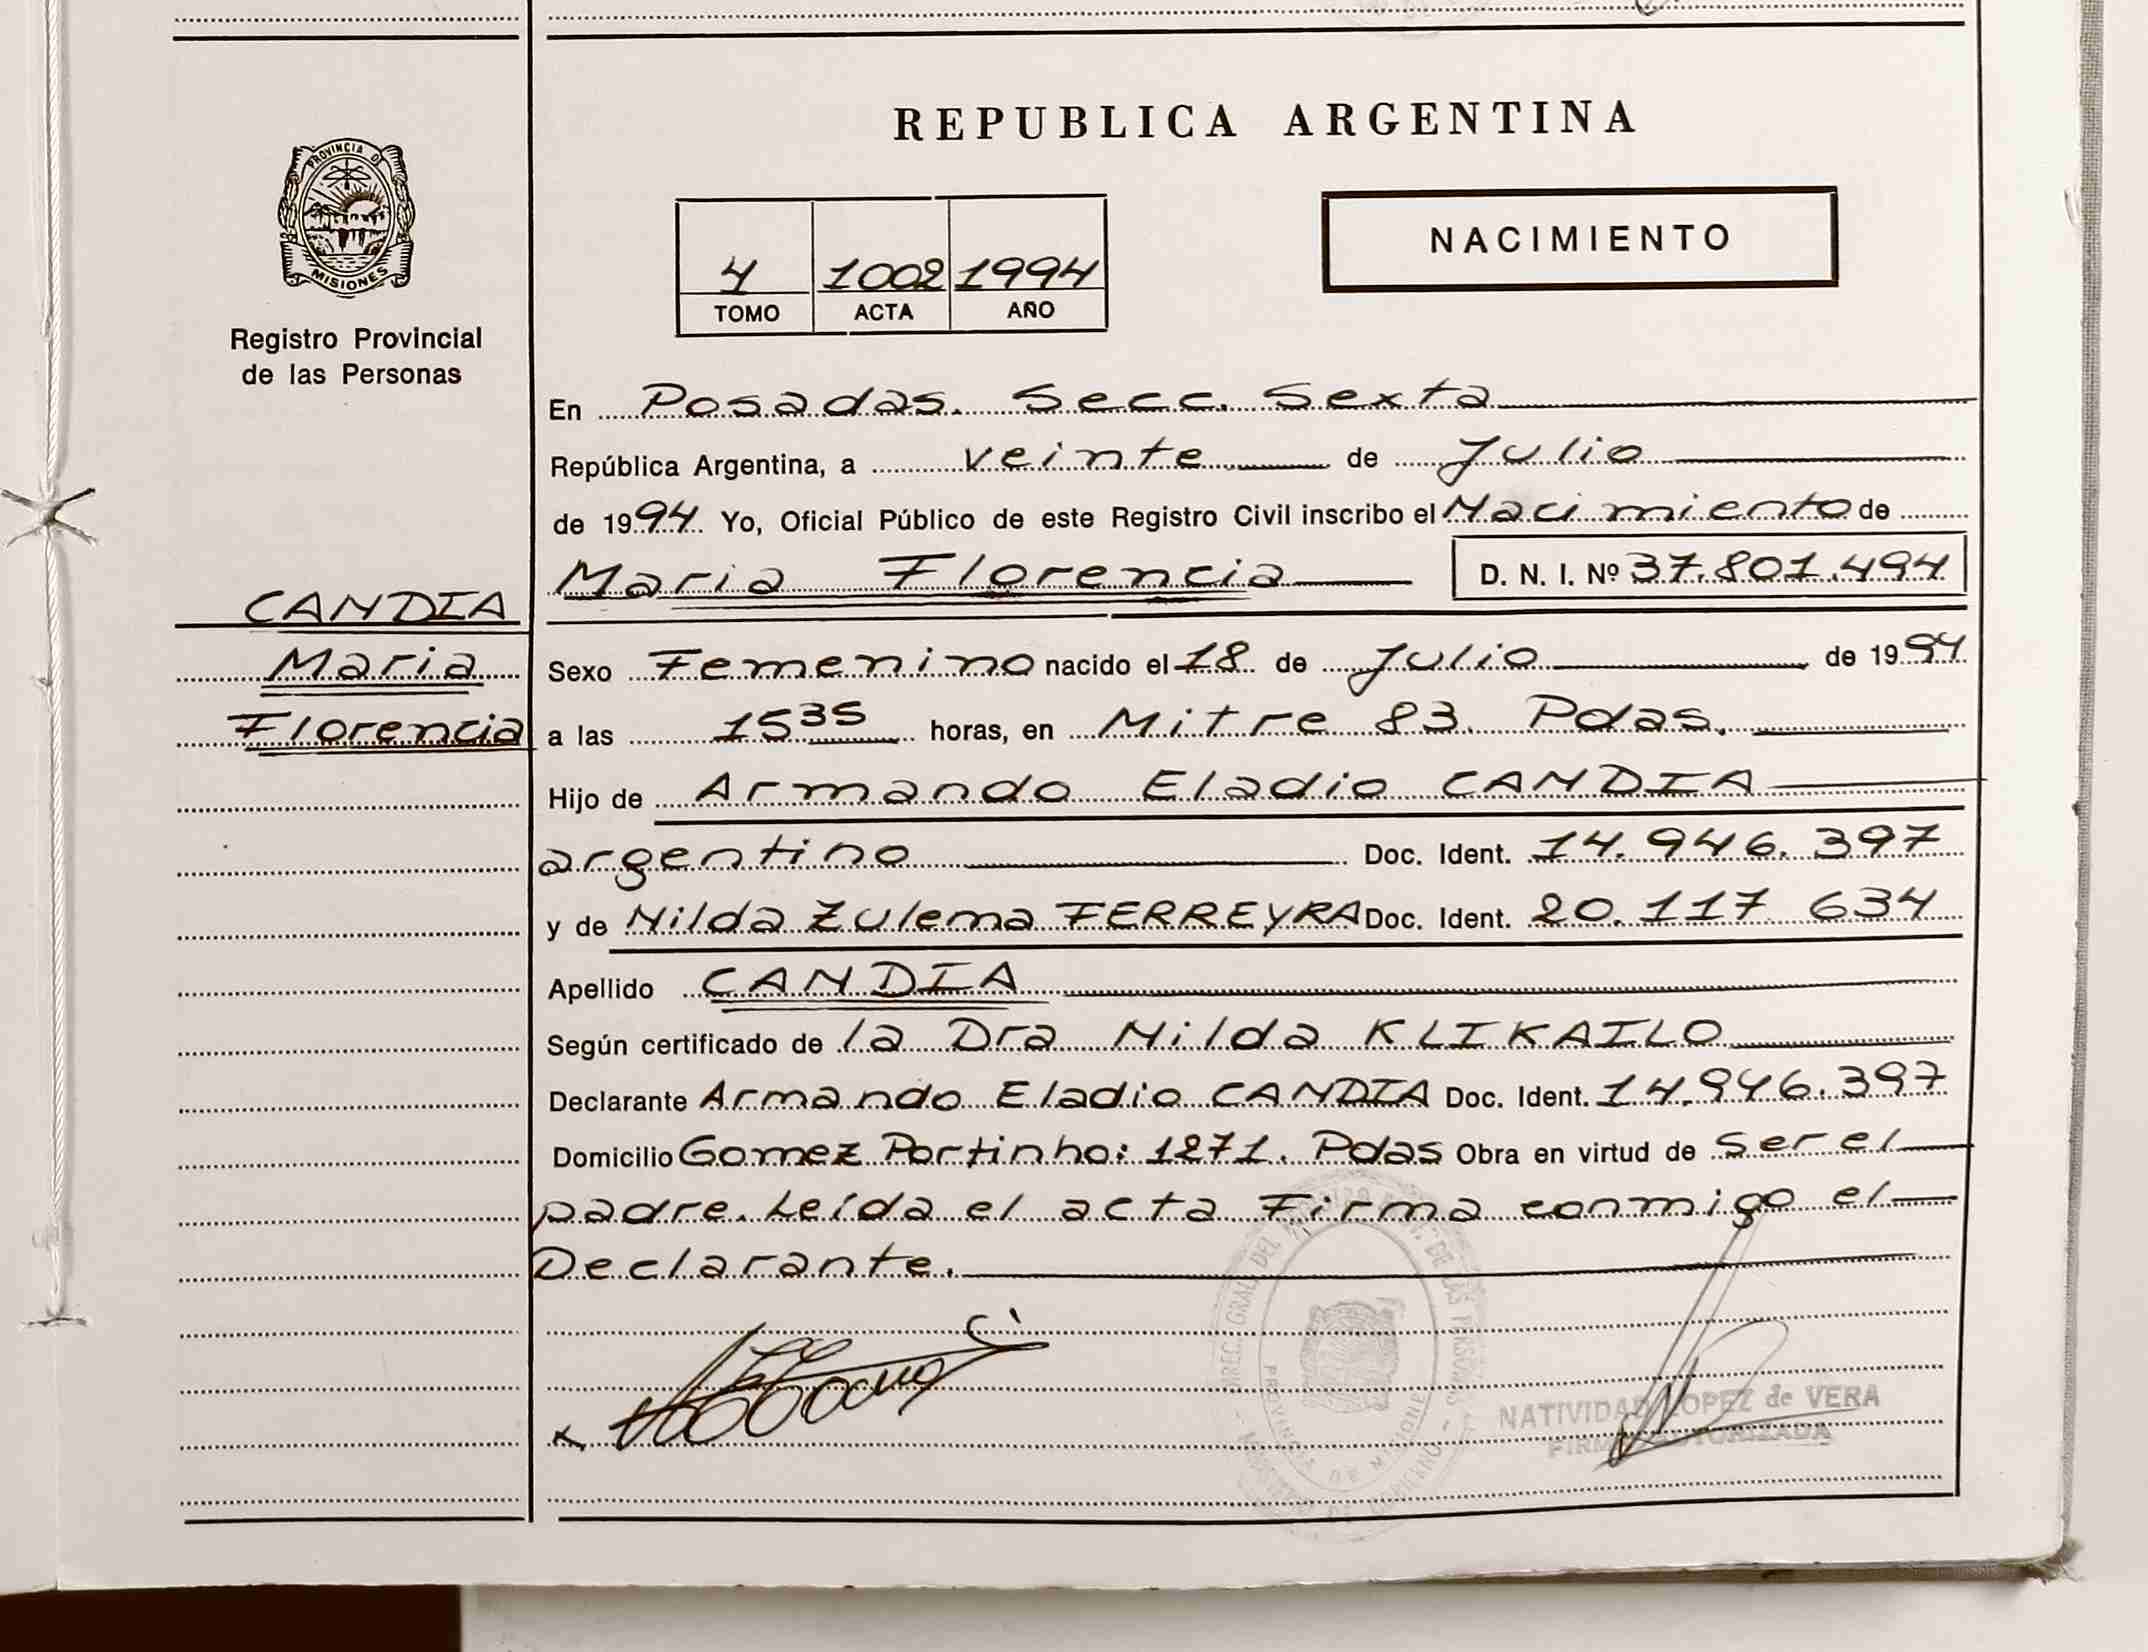 REPUBLICA ARGENTINA
PROVINCIA D
MISIONES
Registro Provincial
de las Personas
NACIMIENTO
4 1002 1994
TOMO ACTA AÑO
En Posadas. Secc. Sexta
República Argentina, a veinte de Julio
de 1994 Yo, Oficial Público de este Registro Civil inscribo el Nacimiento de
Maria Florencia D. N. I. Nº 37.801.494
CANDIA
Maria
Florencia
Sexo Femenino nacido el 18 de Julio de 1994
a las 15 35 horas, en Mitre 83. Pdas.
Hijo de Armando Eladio CANDIA
argentino Doc. Ident. 14.946.397
y de Nilda Zulema FERREYRA Doc. Ident. 20.117 634
Apellido CANDIA
Según certificado de la Dra Nilda KLIKAILO
Declarante Armando Eladio CANDIA Doc. Ident. 14.946.397
Domicilio Gomez Portinho: 1271. Pdas Obra en virtud de ser el
padre. Leída el acta Firma conmigo el
Declarante.
PROVINCIA DE MISIONE
NATIVIDAD LOPEZ de VERA
FIRMA AUTORIZADA